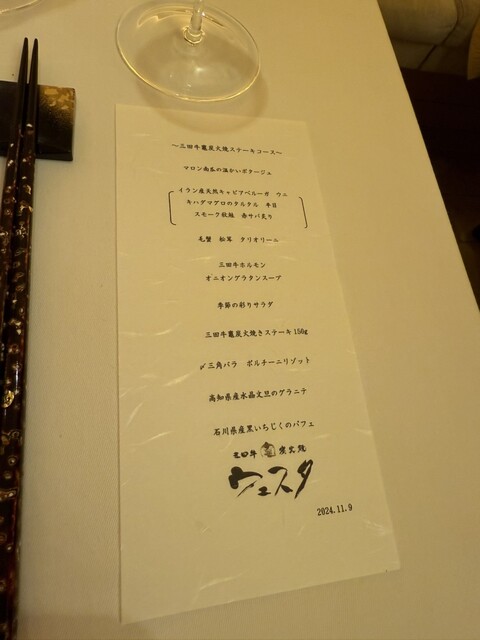 ～三田牛竈炭火焼ステーキコース～
マロン南瓜の温かいポタージュ
イラン産天然キャビアベルーガ ウニ
キハダマグロのタルタル 平目
スモーク秋鮭 赤サバ炙り
毛蟹 松茸 タリオリーニ
三田牛ホルモン
オニオングラタンスープ
季節の彩りサラダ
三田牛竈炭火焼きステーキ150g
〆三角バラ ポルチーニリゾット
高知県産水晶文旦のグラニテ
石川県産黒いちじくのパフェ
三田牛 炭火焼
ウェスタ
2024.11.9